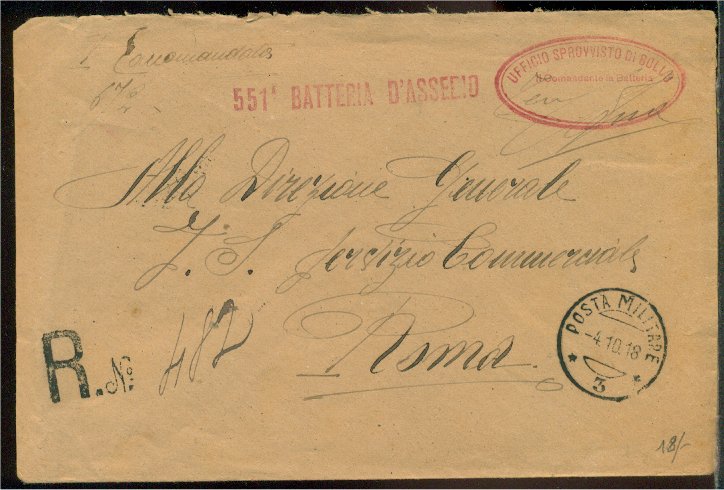 Raccomandata
551ª BATTERIA D'ASSEDIO
UFFICIO SPROVVISTO DI BOLLO
Il Comandante la Batteria
Alla Direzione Generale
F. S. Servizio Commerciale
Roma
R. N. 482
POSTA MILITARE
-4.10.18
* 3 *
18/-